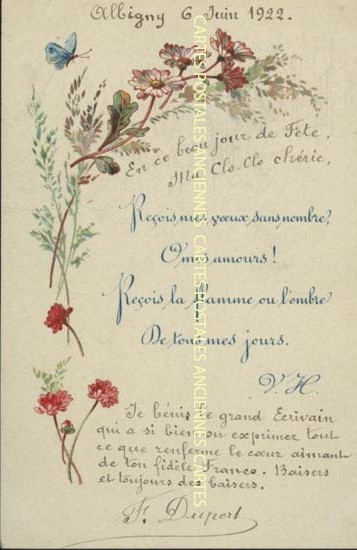 Albigny 6 Juin 1922.
En ce beau jour de Fête,
Ma Clo-Clo Chérie,
Reçois mes vœux sans nombre,
O mes amours!
Reçois la flamme ou l'ombre
De tous mes jours.
V. H.
Je bénis le grand Ecrivain
qui a si bien su exprimer tout
ce que renferme le cœur aimant
de ton fidèle Franco. Baisers
et toujours des baisers.
F. Duport
CARTES POSTALES ANCIENNES CARTES POSTALES ANCIENNES CARTES